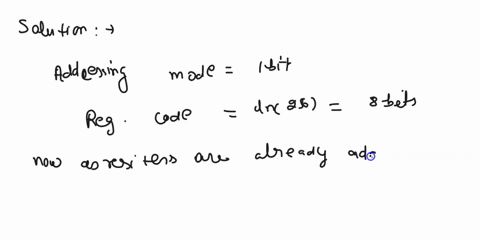 Solution :→
Addressing mode = 1bit
Reg. code = ln(26) = 8 bits
now as resiters are already ado